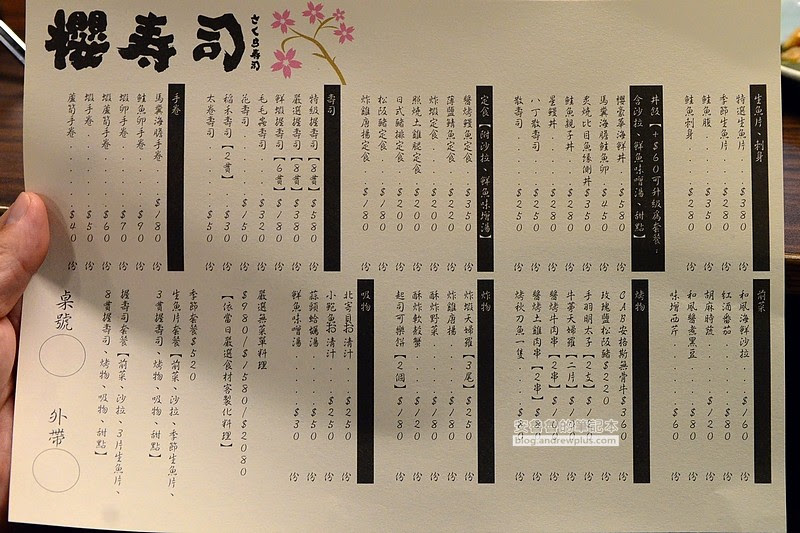 櫻壽司
さくら寿司
生魚片、刺身
特選生魚片.....$380份
季節生魚片.....$280份
鮭魚腹.....$350份
鮭魚刺身.....$280份
丼飯【+$60可升級為套餐：
含沙拉、鮮魚味增湯、甜點】
櫻豪華海鮮丼..$580份
馬糞海膽鮭魚卵..$450份
炙燒比目魚緣側丼..$350份
鮭魚親子丼.....$280份
星鰻丼.....$280份
八丁散壽司.....$250份
散壽司.....$250份
定食【附沙拉、鮮魚味增湯】
醬烤鰻魚定食...$350份
薄鹽鯖魚定食...$220份
炸蝦定食.....$200份
照燒土雞腿定食..$220份
日式豬排定食...$200份
松阪豬定食....$220份
炸雞唐揚定食...$180份
壽司
特級握壽司【8貫】$580份
嚴選握壽司【8貫】$380份
鮮蝦握壽司【6貫】$180份
毛毛蟲壽司....$320份
花壽司.....$150份
稻禾壽司【2貫】..$30份
太卷壽司.....$50份
手卷
馬糞海膽手卷...$180份
鮭魚卵手卷....$90份
蝦卵手卷.....$70份
蝦手卷.....$50份
蘆筍手卷.....$40份
前菜
和風海鮮沙拉...$160份
紅酒番茄.....$180份
胡麻時蔬.....$120份
和風醬煮黑豆...$80份
味增西芹.....$60份
烤物
CAB安格斯無骨牛$360份
玫瑰鹽松阪豬$220份
手羽明太子【2支】
牛蒡天婦羅【二片】
醬烤牛肉串【2串】
醬烤土雞肉串【2串】
烤秋刀魚一隻
炸物
炸蝦天婦羅【3尾】$250份
炸雞唐揚.....$180份
酥炸野菜.....$120份
酥炸軟殼蟹....$220份
起司可樂餅【2個】$180份
吸物
北寄貝お清汁...$250份
小鮑魚お清汁...$250份
蒜頭蛤蠣湯....$50份
鮮魚味增湯....$30份
嚴選無菜單料理
$980/$1580/$2080
【依當日嚴選食材客製化料理】
季節套餐$520
生魚片套餐【前菜、沙拉、季節生魚片、
3貫握壽司、烤物、吸物、甜點】
握壽司套餐【前菜、沙拉、3片生魚片、
8貫握壽司、烤物、吸物、甜點】
桌號
外帶
blog.andrewplus.com